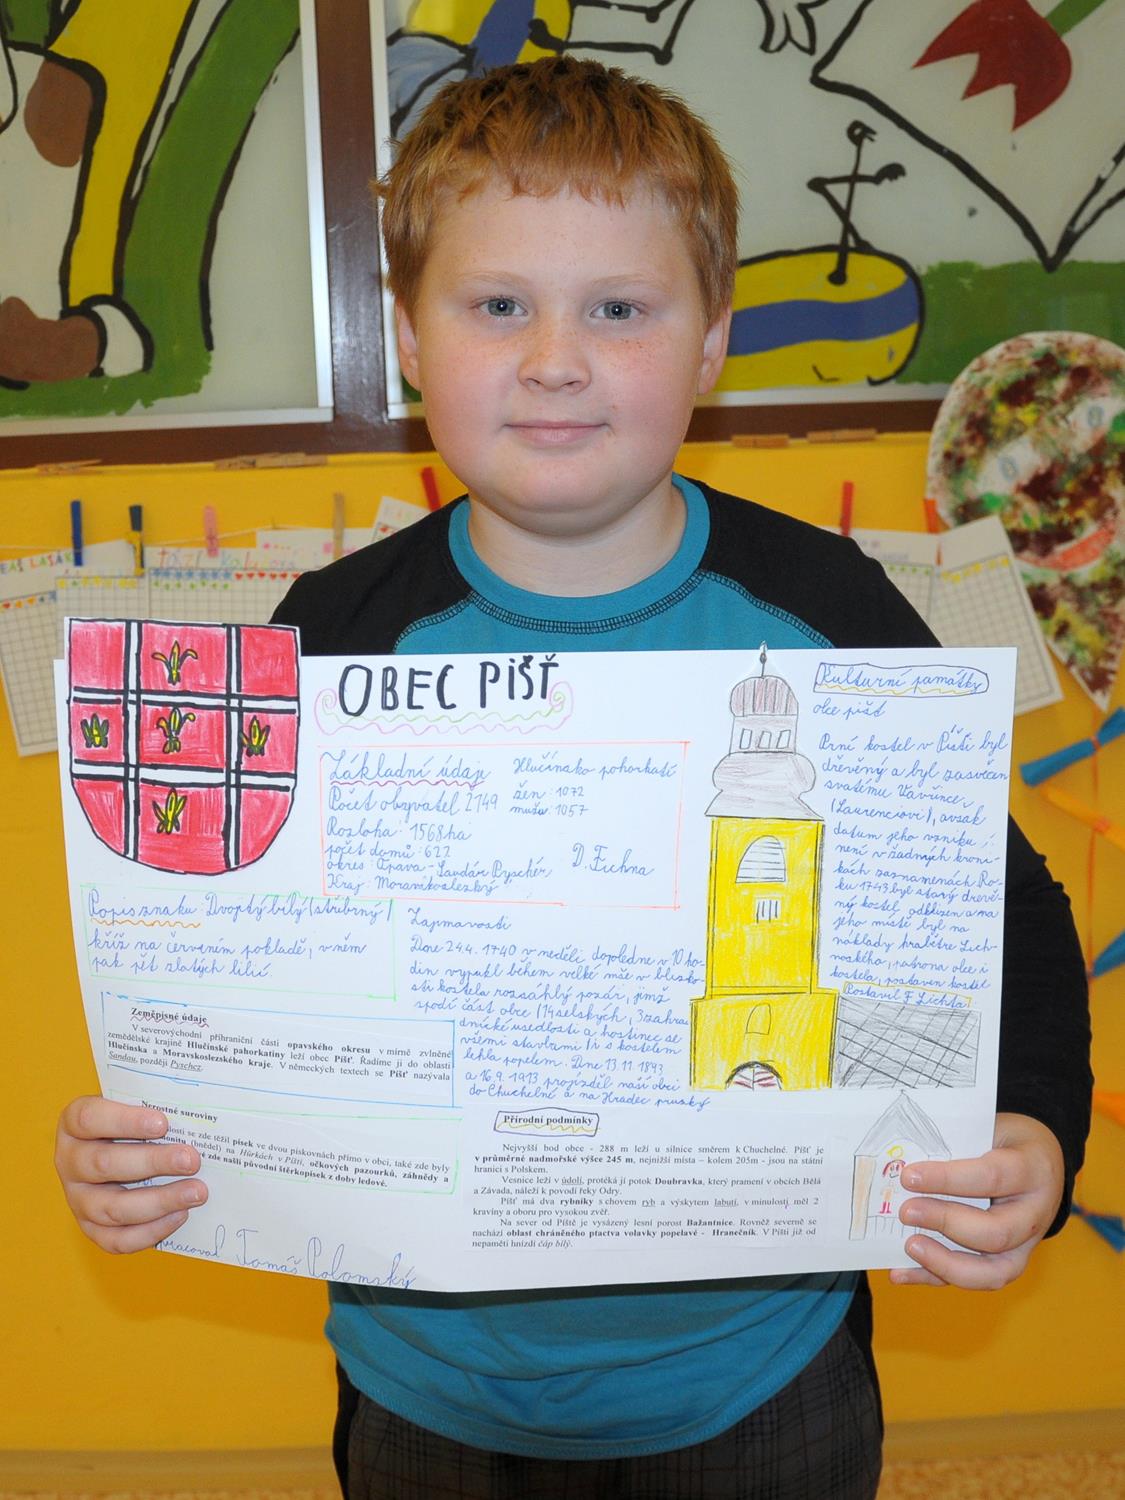 OBEC PIŠŤ
Základní údaje
Hlučínsko pohorkatí
Počet obyvatel 2149
žen: 1072
mužů: 1057
Rozloha: 1568ha
počet domů: 622
okres: Opava-
D. Fichna
Kraj: Moravskoslezský
Popis znaku: Dvoptý bílý (stříbrný)
kříž na červeném pokladě, v něm
pak pět zlatých lilií.
Zeměpisné údaje
V severovýchodní příhraniční části opavského okresu v mírně zvlněné
zemědělské krajině Hlučínské pahorkatiny leží obec Píšť. Řadíme ji do oblasti
Hlučínska a Moravskoslezského kraje. V německých textech se Píšť nazývala
Sandau, později Pyschcz.
Nerostné suroviny
se zde těžil písek ve dvou pískovnách přímo v obci, také zde byly
(bnědel) na Hůrkách v Píšti, očkových pazourků, záhnědy a
zde našli původní štěrkopísek z doby ledové.
Tomáš Polomský
Zajmavosti
Dne 24.4. 1740 v neděli dopoledne v 10 ho-
din vypukl během velké mše v blízko-
sti kostela rozsáhlý požár, jimž
spodí část obce (14 selských, 3 zahra
dnické usedlosti a hostinec se
všemi stavbami) i s kostelem
lehla popelem. Dne 13.11. 1893
a 16.9. 1913 projížděl naší obcí
do Chuchelné a na Hradec pruský
Přírodní podmínky
Nejvyšší bod obce - 288 m leží u silnice směrem k Chuchelné. Píšť je
v průměrné nadmořské výšce 245 m, nejnižší místa – kolem 205m - jsou na státní
hranici s Polskem.
Vesnice leží v údolí, protéká jí potok Doubravka, který pramení v obcích Bělá
a Závada, náleží k povodí řeky Odry.
Píšť má dva rybníky s chovem ryb a výskytem labutí, v minulosti měl 2
kravíny a oboru pro vysokou zvěř.
Na sever od Píště je vysázený lesní porost Bažantnice. Rovněž severně se
nachází oblast chráněného ptactva volavky popelavé - Hranečník. V Píšti již od
nepaměti hnízdí čáp bílý.
Kulturní památky
obce píšť
Prní kostel v Píšti byl
dřevěný a byl zasvěcen
svatému Vavřinci
(Laurenciovi), avšak
datum jeho vzniku
není v žadných kroni-
kách zaznamenách Ro-
ku 1743 byl starý dřevě-
ný kostel odklizen a na
jeho místě byl na
náklady hraběte Lich-
noského, patrona obce i
kostela, postaven kostel
Postavil F. Lichta